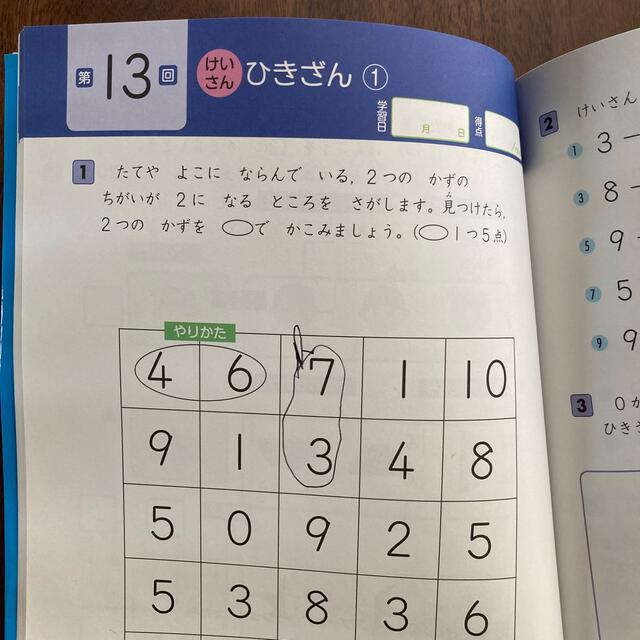 第13回 けいさん ひきざん ①
学習日 月 日 得点
1 たてや よこに ならんで いる,2つの かずの
ちがいが 2に なる ところを さがします。見つけたら,
み
2つの かずを で かこみましょう。( 1つ5点)
やりかた
4 6 7 1 10
9 1 3 4 8
5 0 9 2 5
5 3 8 3 6
2 けいさん
1 3
3 8
5 9
7 5
9 9
3 0が
ひきざ